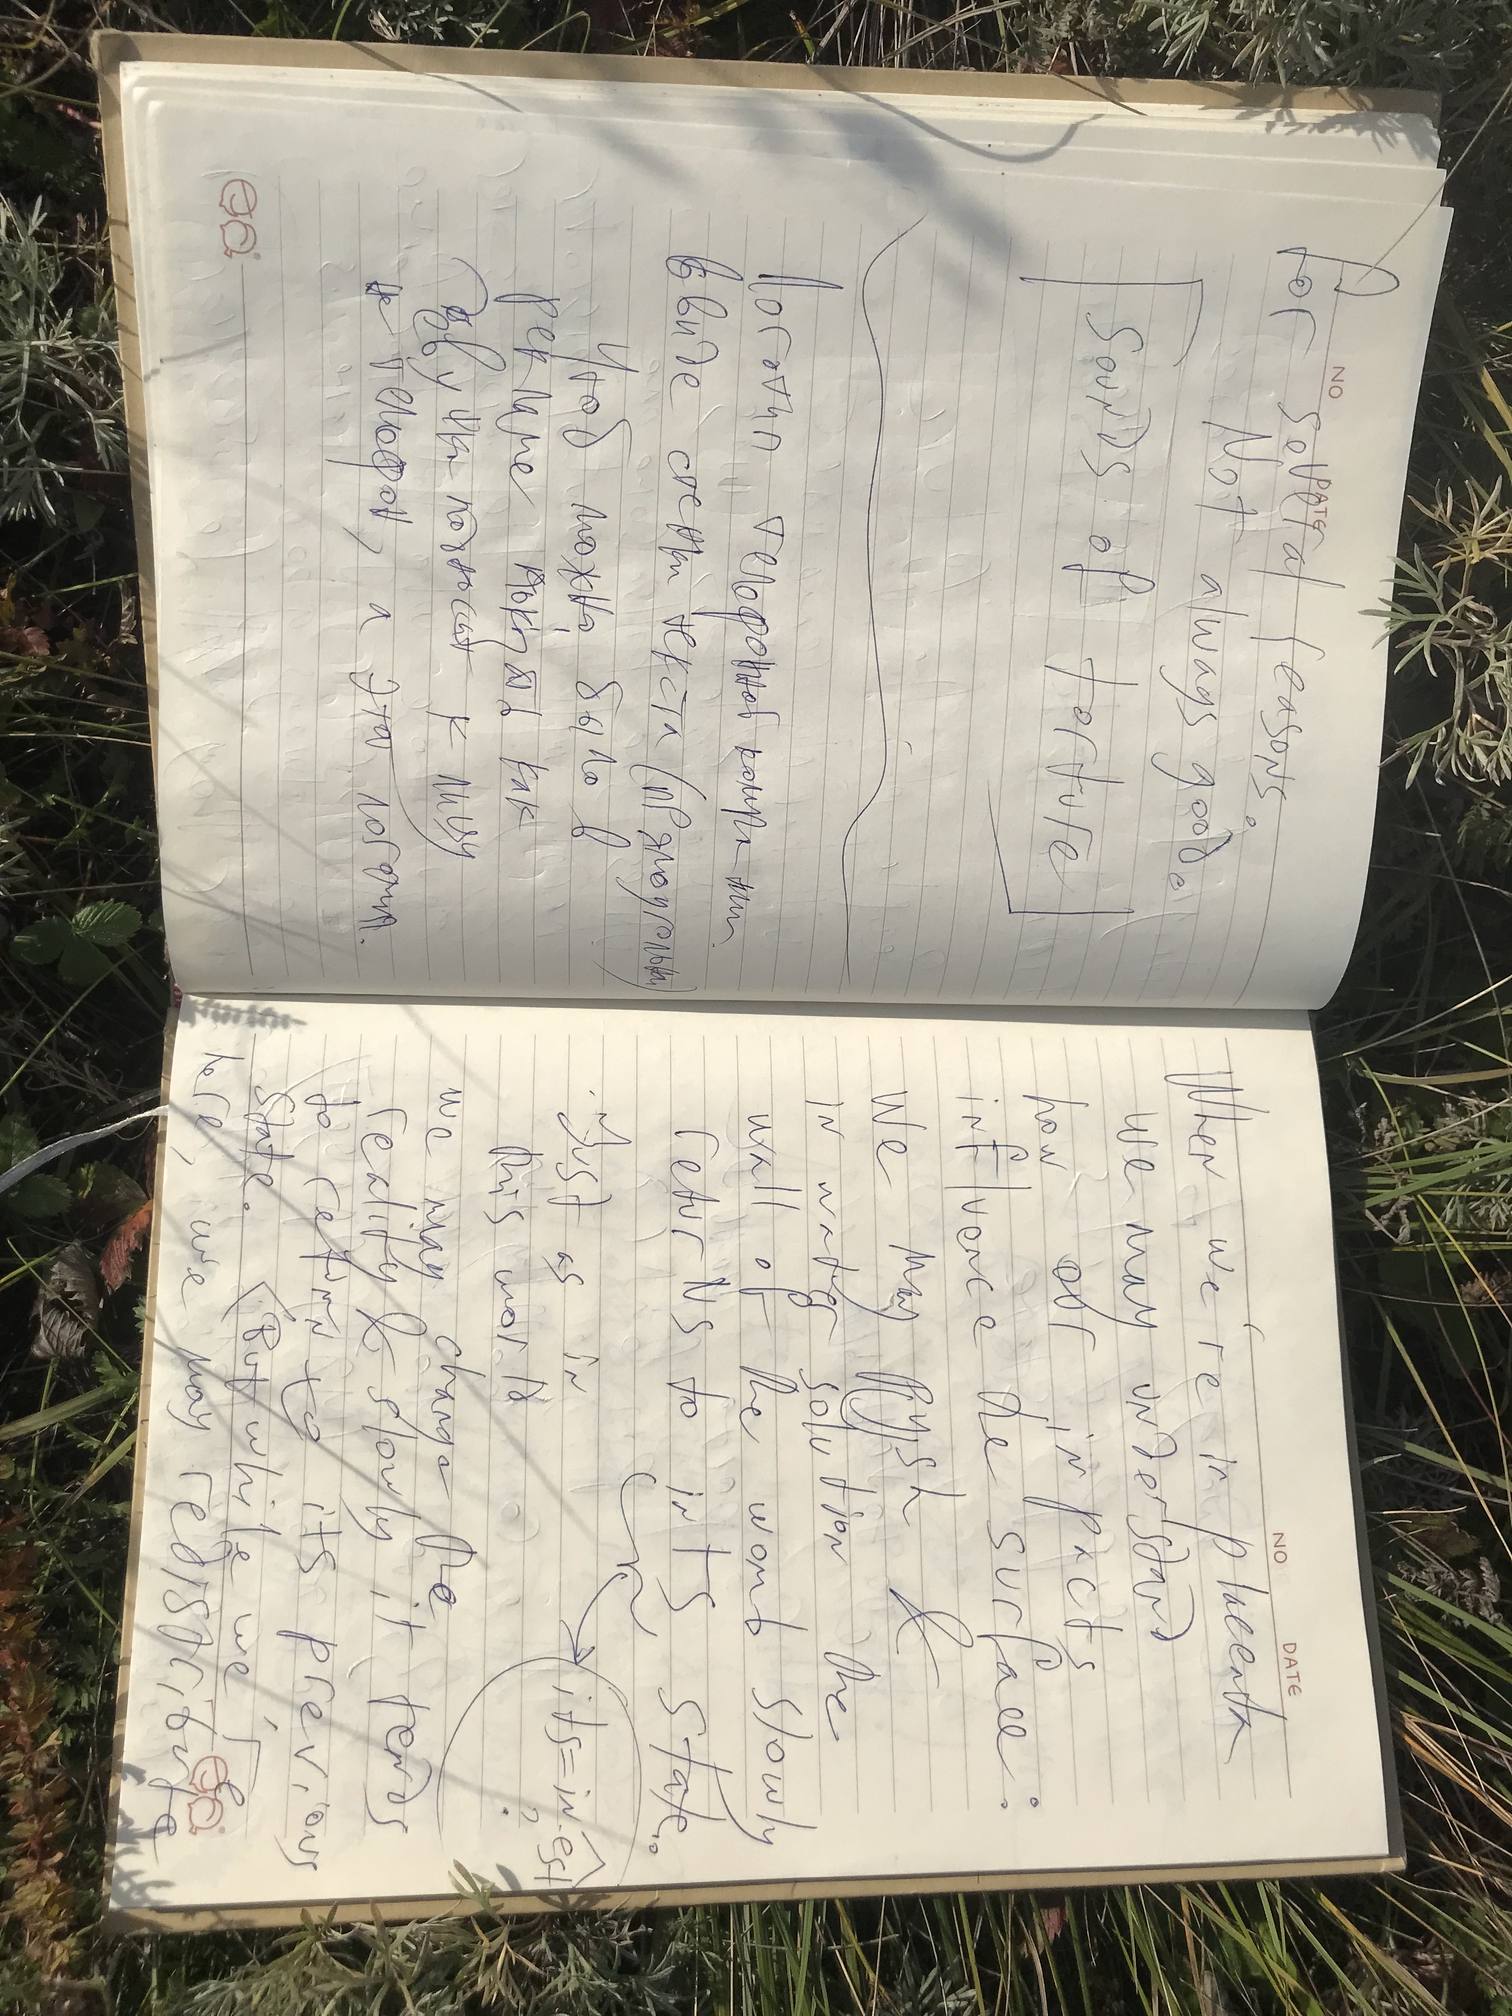 NO
DATE
For several reasons.
Not always good.
Sounds of torture
Логотип телефонной компании.
в виде стенки текста (прямоугольный)
Чтоб можно было в
рекламе показать как
девушка подносит к лицу
не телефон, а это логотип.
NO
DATE
When we're in placenta
we may understand
how our inpacts
influence the surface:
We may push &
in water solution the
wall of the womb slowly
returns to ints state.
Just as in
this world
its = in est
?
we may change the
reality & slowly it tends
to return to its previous
state. (But while we're
here, we may redistribute